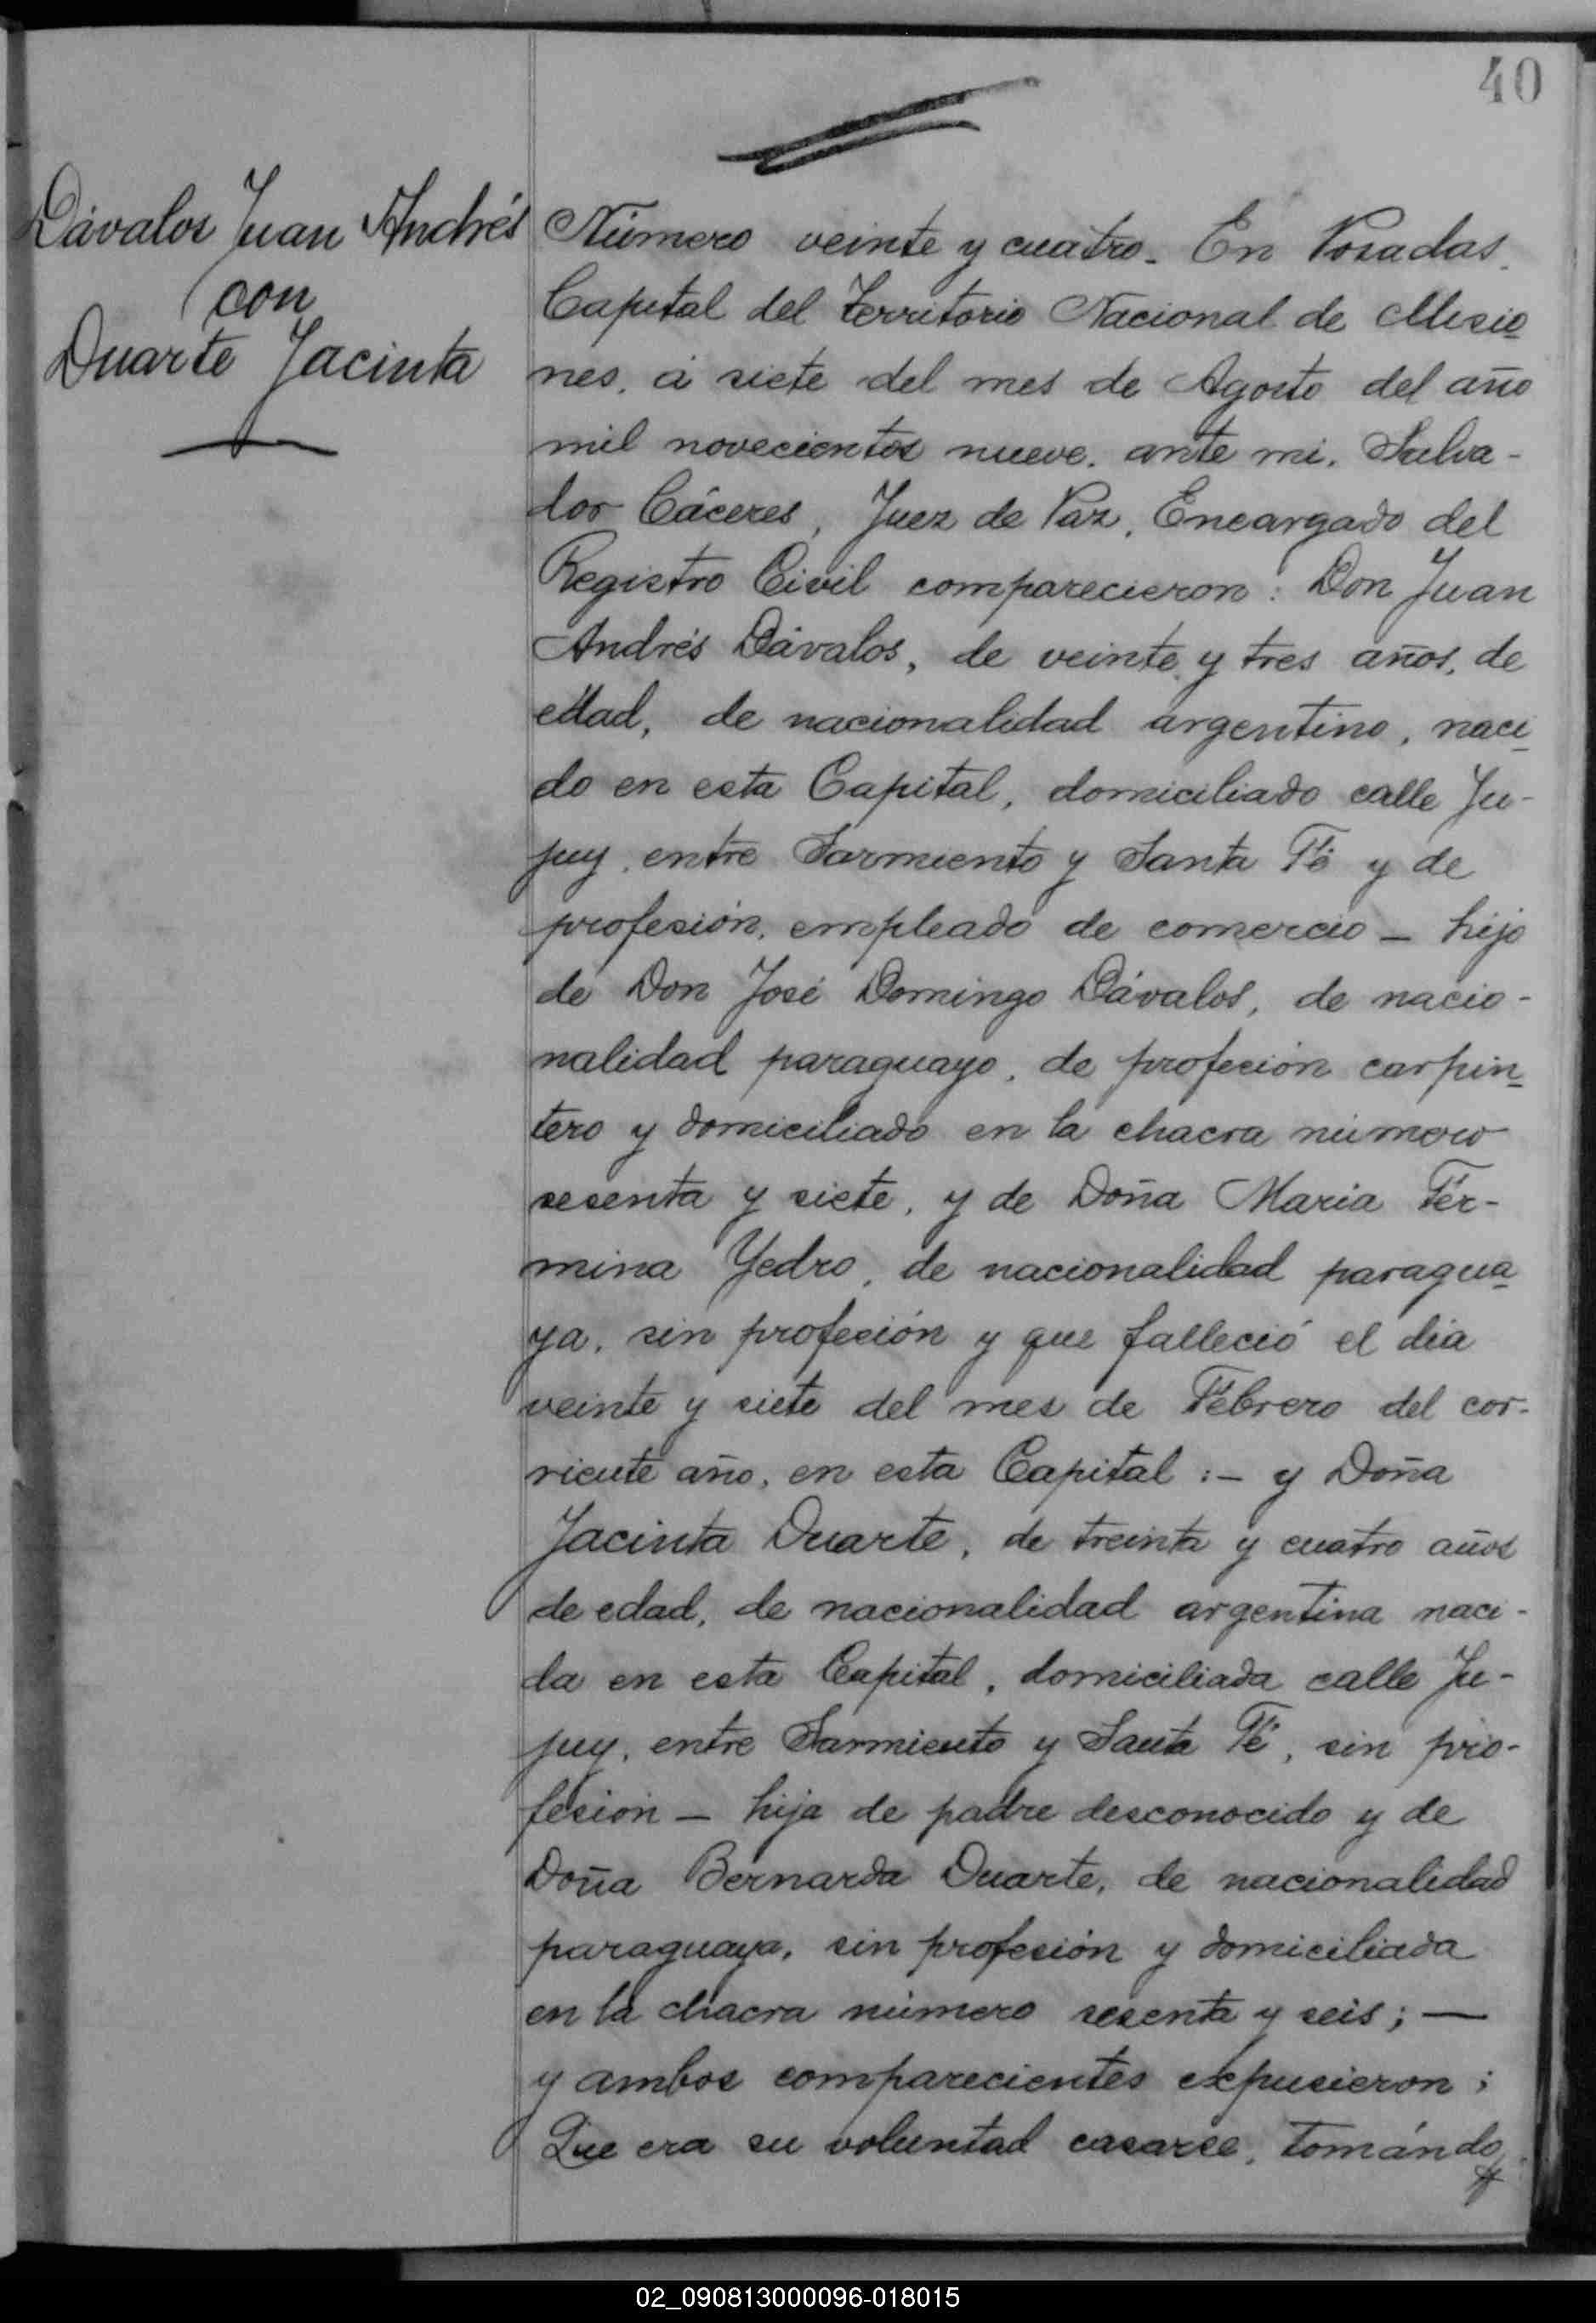 40
Dávalos Juan Andrés
con
Duarte Jacinta
Número veinte y cuatro. En Posadas.
Capital del Territorio Nacional de Misio
nes, á siete del mes de Agosto del año
mil novecientos nueve, ante mi, Salva-
dor Cáceres, Juez de Paz, Encargado del
Registro Civil comparecieron: Don Juan
Andrés Dávalos, de veinte y tres años, de
edad, de nacionalidad argentino, naci
do en esta Capital, domiciliado calle Ju-
juy, entre Sarmiento y Santa Fé y de
profesión, empleado de comercio — hijo
de Don José Domingo Dávalos, de nacio-
nalidad paraguayo, de profesión carpin
tero y domiciliado en la chacra número
sesenta y siete, y de Doña Maria Fer-
mina Yedro, de nacionalidad paragua
ya, sin profesión y que falleció el dia
veinte y siete del mes de Febrero del cor-
riente año, en esta Capital :— y Doña
Jacinta Duarte, de treinta y cuatro años
de edad, de nacionalidad argentina naci-
da en esta Capital, domiciliada calle Ju-
juy, entre Sarmiento y Santa Fé, sin pro-
fesión — hija de padre desconocido y de
Doña Bernarda Duarte, de nacionalidad
paraguaya, sin profesión y domiciliada
en la chacra número sesenta y seis; —
y ambos comparecientes expusieron;
Que era su voluntad casarse, tomándo
02_090813000096-018015